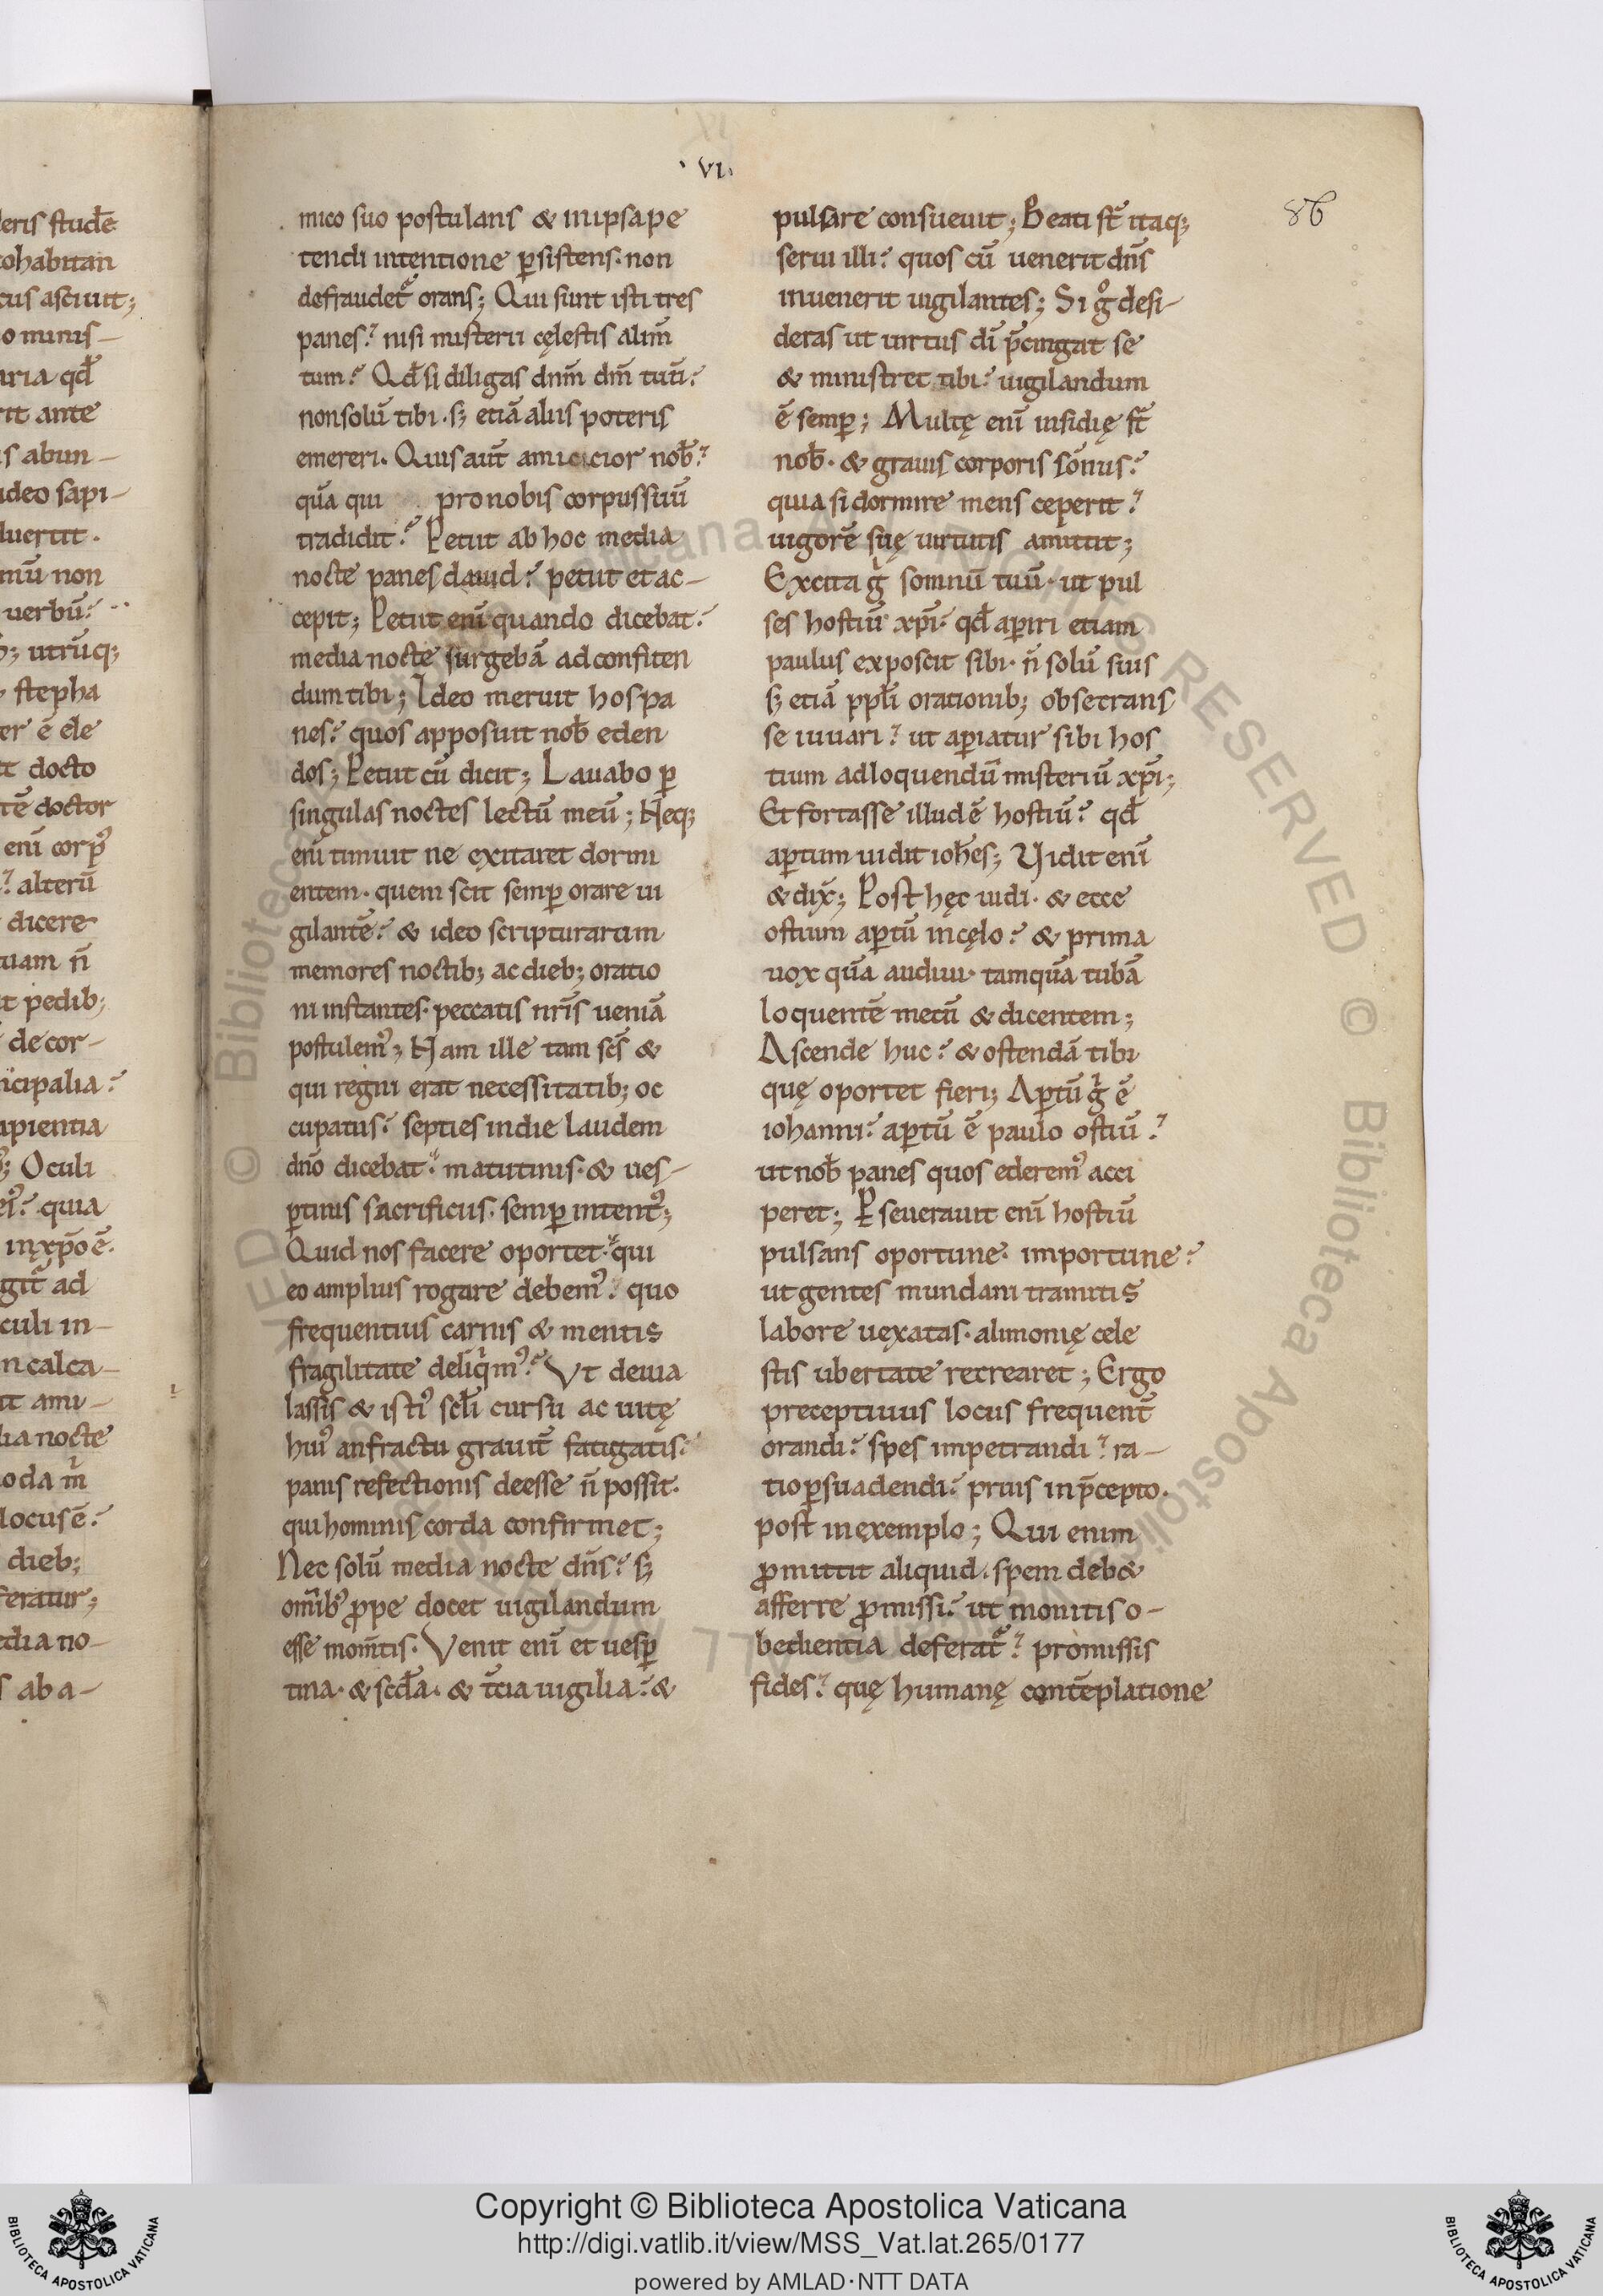 · VI ·
86
mico suo postulans & inipsa pe
tendi intentione ꝑsistens· non
defraudet᷑ orans; Qui sunt isti tres
panes? nisi misterii cęlestis alim̄
tum? Qđ si diligas dnm̄ dm̄ tuū?
non solū tibi · sꝫ etiā aliis poteris
emereri. Quis aut̄ amicicior nob̄?
quā qui pro nobis corpus suū
tradidit? Petiit ab hoc media
nocte panes dauid? petiit et ac–
cepit; Petiit enī quando dicebat?
media nocte surgebā ad confiten
dum tibi; Ideo meruit hos pa
nes? quos apposuit nob̄ eden
dos; Petiit cū dicit; Lauabo ꝑ
singulas noctes lectū meū; Neqꝫ
enī timuit ne exitaret dormi
entem· quem scit semꝑ orare ui
gilantē? & ideo scripturarum
memores noctibꝫ ac diebꝫ oratio
ni instantes· peccatis nr̄is ueniā
postulemꝰ; Nam ille tam sc̄s &
qui regni erat necessitatibꝫ oc
cupatus? septies in die laudem
dn̄o dicebat? matutinis· & ues–
ꝑtinis sacrificiis· semꝑ intentꝰ;
Quid nos facere oportet? qui
eo amplius rogare debemꝰ? quo
frequentius carnis & mentis
fragilitate delinqⁱmꝰ? Vt deuia
lassis & istiꝰ scl̄i cursu ac uitę
huiꝰ anfractu grauit̄ fatigatis?
panis refectionis deesse n̄ possit·
qui hominis corda confirmet;
Nec solū media nocte dn̄s? sꝫ
omīb; ꝓpe docet uigilandum
esse mom̄tis· Venit enī et uesꝑ
tina· & scđa· & t̄cia uigilia? &
pulsare consueuit; Beati st̄ itaqꝫ
serui illi? quos cū uenerit dn̄s
inuenerit uigilantes; Si gͦ desi–
deras ut uirtus dī p̄cingat se
& ministret tibi? uigilandum
ē semꝑ; Multę enī insidię st̄
nob̄· & grauis corporis sōnus?
quia si dormire mens ceperit?
uigorē suę uirtutis amittit;
Excita gⁱ somnū tuū· ut pul
ses hostiū xp̄i· qđ aꝑiri etiam
paulus exposcit sibi· n̄ solū suis
sꝫ etiā ppl̄i orationibꝫ obsecrans
se iuuari? ut aꝑiatur sibi hos
tium ad loquendū misteriū xp̄i;
Et fortasse illud ē hostiū? qđ
aꝑtum uidit ioh̄es; Vidit enī
& dix̄; Post hęc uidi· & ecce
ostium aꝑtū in cęlo? & prima
uox quā audiui· tamquā tubā
loquentē mecū & dicentem;
Ascende huc? & ostendā tibi
quę oportet fieri; Aꝑtū gⁱ ē
iohanni? aꝑtū ē paulo ostiū?
ut nob̄ panes quos ederemꝰ acci
peret; Ꝑseuerauit enī hostiū
pulsans oportune· importune?
ut gentes mundani tramitis
labore uexatas· alimonię cele
stis ubertate recrearet; Ergo
preceptiuus locus frequent̄
orandi? spes impetrandi? ra–
tio ꝑsuadendi? prius in p̄cepto·
post in exemplo; Qui enim
ꝓmittit aliquid· spem deb&
afferre ꝓmissi? ut monitis o–
bedientia deferat᷑? promissis
fides? quę humanę contēplatione
Copyright © Biblioteca Apostolica Vaticana
http://digi.vatlib.it/view/MSS_Vat.lat.265/0177
powered by AMLAD·NTT DATA